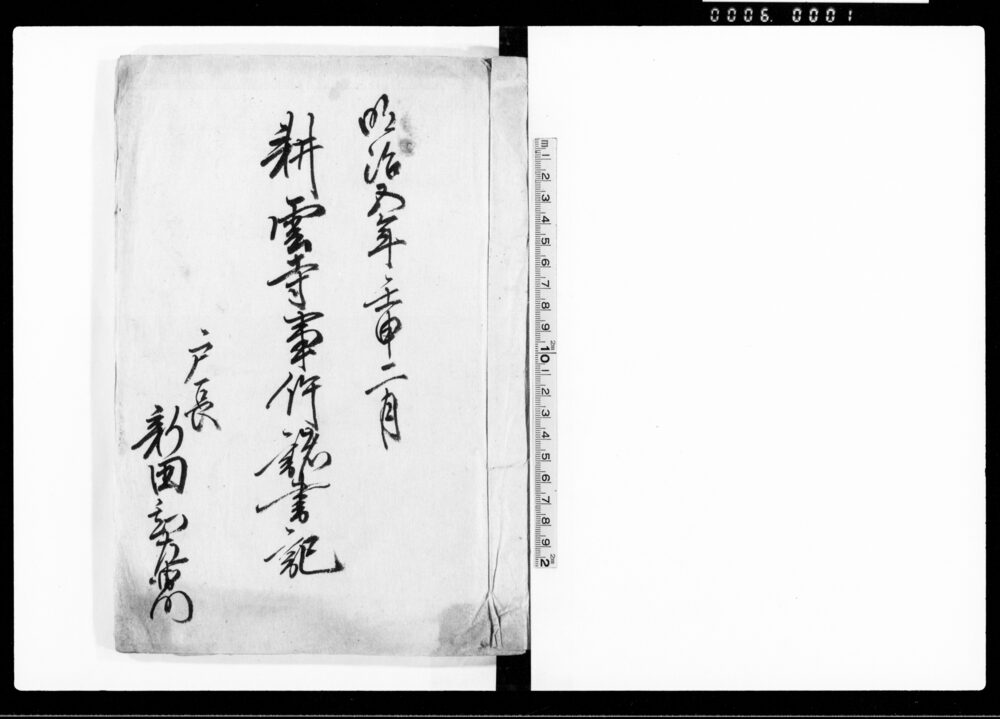 0006. 0001
明治五年壬申二月
耕雲寺事件諸書記
戸長
新田
m 1 2 3 4 5 6 7 8 9 10 1 2 3 4 5 6 7 8 9 2